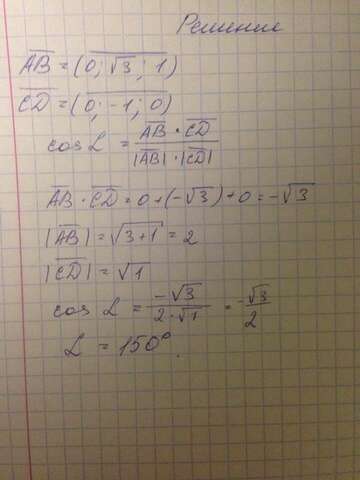 Решение
AB = (0; √3; 1)
CD = (0; -1; 0)
cos L = AB · CD / |AB| · |CD|
AB · CD = 0 + (-√3) + 0 = -√3
|AB| = √3+1 = 2
|CD| = √1
cos L = -√3 / 2·√1 = -√3 / 2
L = 150°.